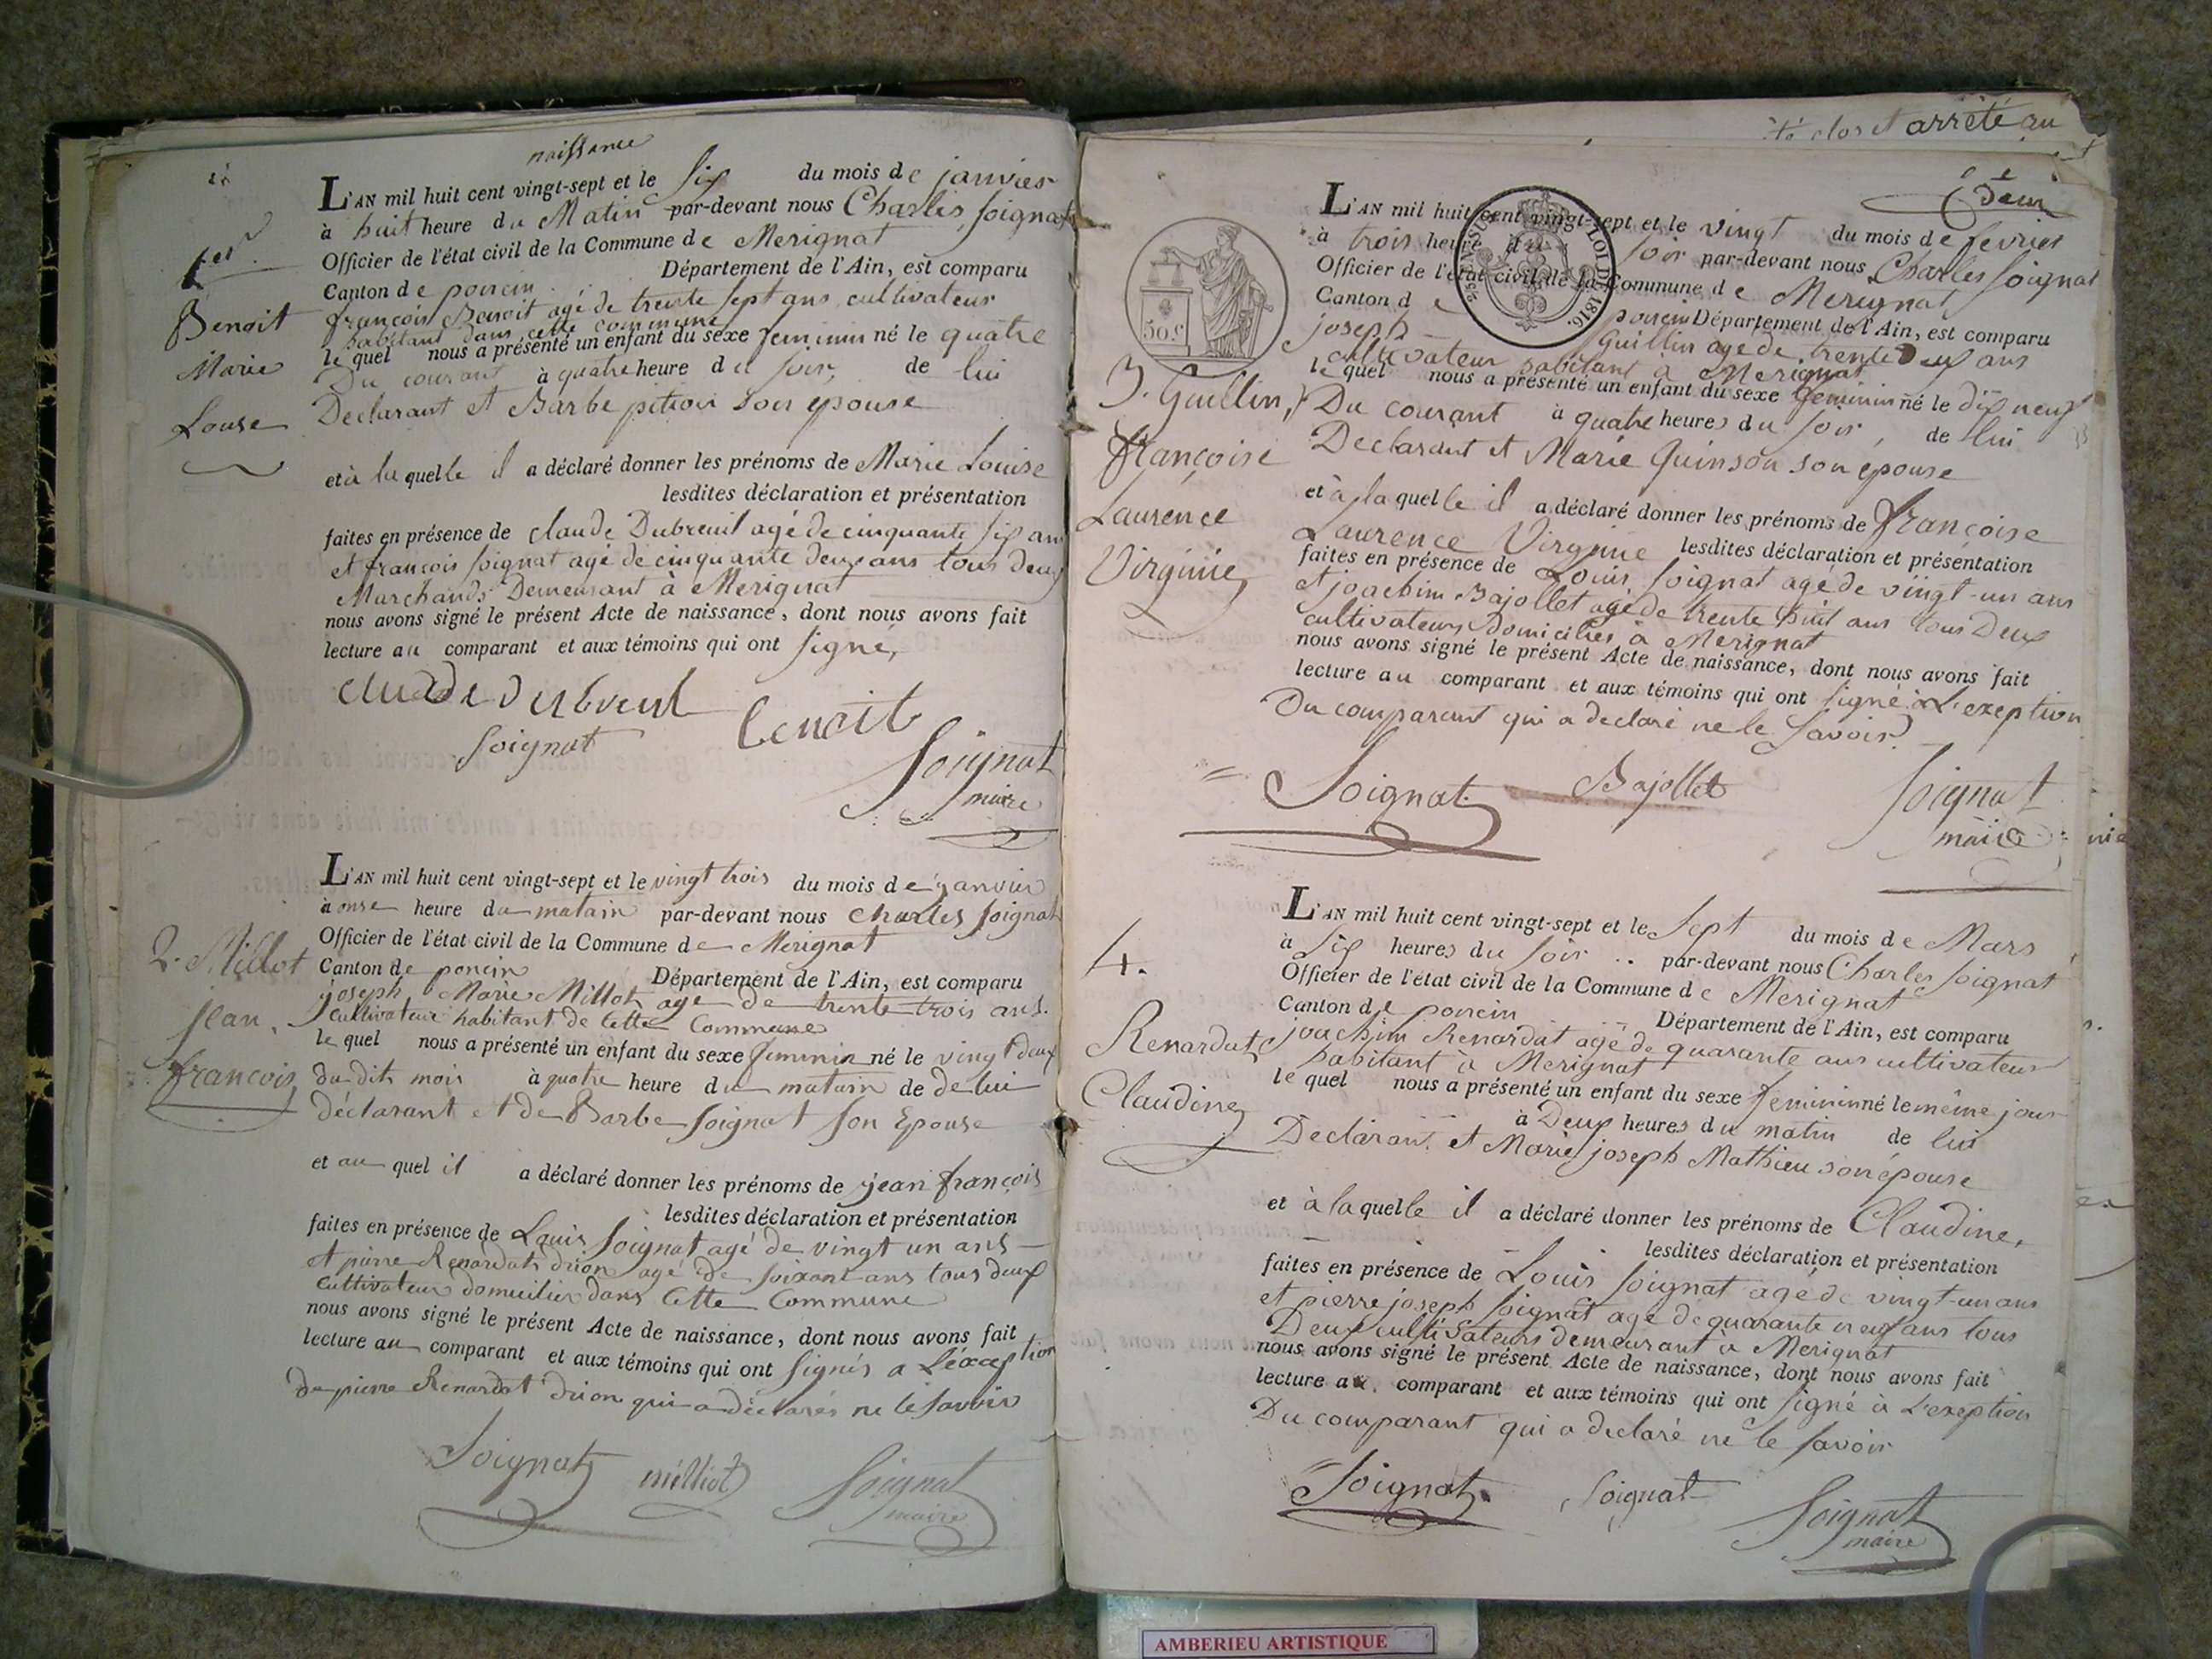 naissance
1er.
Benoit
Marie
Louse
L'AN mil huit cent vingt-sept et le six du mois de janvier
à huit heure du Matin par-devant nous Charles Soignat
Officier de l'état civil de la Commune de Merignat
Canton de poncin Département de l'Ain, est comparu
françois Benoit agé de trente sept ans cultivateur
habitant dans cette commune
le quel nous a présenté un enfant du sexe feminin né le quatre
Du courant à quatre heure du soir, de lui
Declarant et Barbe pitiou son epouse
et à la quelle il a déclaré donner les prénoms de Marie Louise
lesdites déclaration et présentation
faites en présence de claude Dubreuil agé de cinquante six ans
et françois Soignat agé de cinquante deux ans tous deux
Marchands Demeurant à Merignat
nous avons signé le présent Acte de naissance, dont nous avons fait
lecture au comparant et aux témoins qui ont signé,
benoit
Soignat
Soignat
maire
2. Millot
jean
françois
L'AN mil huit cent vingt-sept et le vingt trois du mois de janvier
à onse heure du matain par-devant nous Charles Soignat
Officier de l'état civil de la Commune de Merignat
Canton de poncin Département de l'Ain, est comparu
joseph Marie Millot age de trente trois ans.
cultivateur habitant de Cette Commune
le quel nous a présenté un enfant du sexe feminin né le vingt deux
du dit mois à quatre heure du matain de de lui
déclarant et de Barbe Soignat son Epouse
et au quel il a déclaré donner les prénoms de jean françois
lesdites déclaration et présentation
faites en présence de Louis Soignat agé de vingt un ans
et pierre Renardat drion agé de soixant ans tous deux
cultivateur domicilier dans Cette Commune
nous avons signé le présent Acte de naissance, dont nous avons fait
lecture au comparant et aux témoins qui ont signés a L'éxception
de pierre Renardat drion qui a déclarés ne le savoir
Soignat milliot Soignat
maire
té clos et arrêté au
Deux
50.C
LOI DE 1816.
3. Guillin,
françoise
Laurence
Virginie
L'AN mil huit cent vingt-sept et le vingt du mois de fevrier
à trois heure du soir par-devant nous Charles Soignat
Officier de l'état civil de la Commune de Merignat
Canton de poncin Département de l'Ain, est comparu
joseph Guillin agé de trente Deux ans
cultivateur habitant à Merignat
le quel nous a présenté un enfant du sexe feminin né le dix neuf
Du courant à quatre heures du soir, de lui
Declarant et Marie Guinson son epouse
et à la quelle il a déclaré donner les prénoms de françoise
Laurence Virginie lesdites déclaration et présentation
faites en présence de Louis Soignat agé de vingt-un ans
et joachim Bajollet agé de trente huit ans tous Deux
cultivateurs domiciliés à Merignat
nous avons signé le présent Acte de naissance, dont nous avons fait
lecture au comparant et aux témoins qui ont signé à L'exeption
Du comparant qui a declaré ne le savoir
Soignat Bajollet Soignat
maire
4.
Renardat
Claudine
L'AN mil huit cent vingt-sept et le Sept du mois de Mars
à six heures du soir par-devant nous Charles Soignat
Officier de l'état civil de la Commune de Merignat
Canton de poncin Département de l'Ain, est comparu
joachim Renardat agé de quarante ans cultivateur
habitant à Merignat
le quel nous a présenté un enfant du sexe feminin né le même jour
à Deux heures du matin de lui
Declarant et Marie joseph Mathieu son épouse
et à la quelle il a déclaré donner les prénoms de Claudine,
lesdites déclaration et présentation
faites en présence de Louis Soignat agé de vingt-un ans
et pierre joseph Soignat agé de quarante neuf ans tous
Deux cultivateurs demeurant à Merignat
nous avons signé le présent Acte de naissance, dont nous avons fait
lecture au comparant et aux témoins qui ont signé à L'exeption
Du comparant qui a declaré ne le savoir
Soignat Soignat Soignat
maire
AMBERIEU ARTISTIQUE